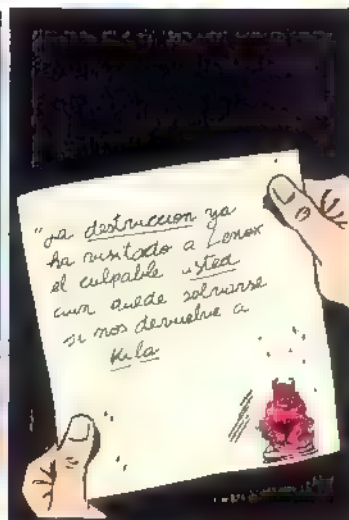 "La destruccion ya
ha visitado a Lenox
el culpable usted
aun puede salvarse
si nos devuelve a
Kila